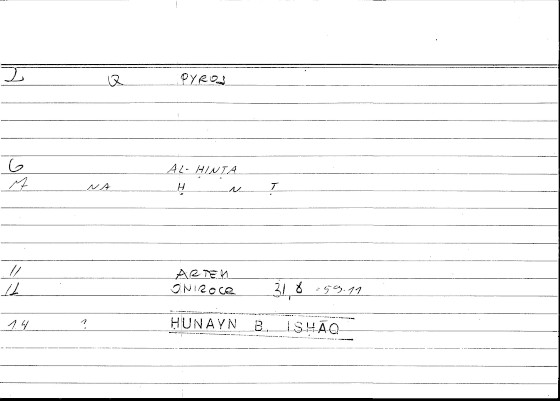 2 Q PYROS
6 AL-ḤINṬA
M NA Ḥ N Ṭ
11 ARTEM
12 ONIROCR 31,8 - 59.11
14 ? HUNAYN B. ISHĀQ